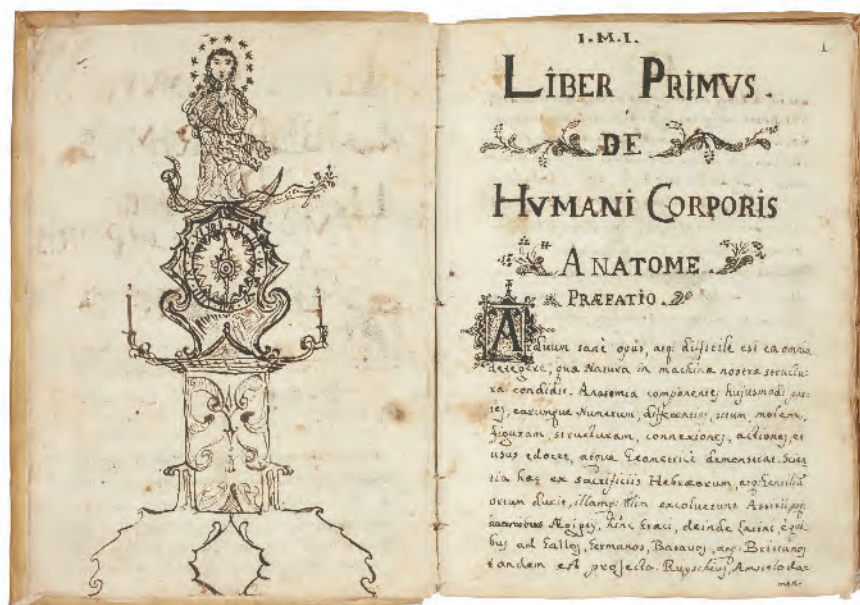 I.M.I.
1
LIBER PRIMVS.
DE
HVMANI CORPORIS
ANATOME.
PRÆFATIO.
Arduum sanè opus, atq; difficile est ea omnia
detegere, quæ Natura in machinæ nostræ structu-
ra condidit. Anatomia componentes hujusmodi par-
tes, earumque Numerum, differentias, situm, molem,
figuram, structuram, connexiones, actiones, et
usus edocet, atque Geometricè demonstrat. Scien-
tia hæc ex sacrificiis Hebræorum, atq; Gentiliũ
ortum duxit, illamq; olim excoluerunt Assirii,
Ægiptij, hinc Græci, deinde Latini, è qui-
bus ad Gallos, Germanos, Batavos, atq; Britannos
tandem est projecta. Ruyschius, Amsteloda-
men-